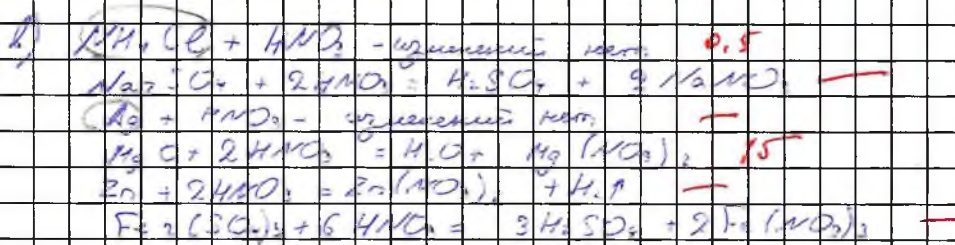 б) NH₄Cl + HNO₃ - изменений нет. 0,5
Na₂SO₄ + 2HNO₃ = H₂SO₄ + 2NaNO₃ —
Ag + HNO₃ - изменений нет. —
MgO + 2HNO₃ = H₂O + Mg(NO₃)₂ 1б
Zn + 2HNO₃ = Zn(NO₃)₂ + H₂↑ —
Fe₂(SO₄)₃ + 6HNO₃ = 3H₂SO₄ + 2Fe(NO₃)₃ —